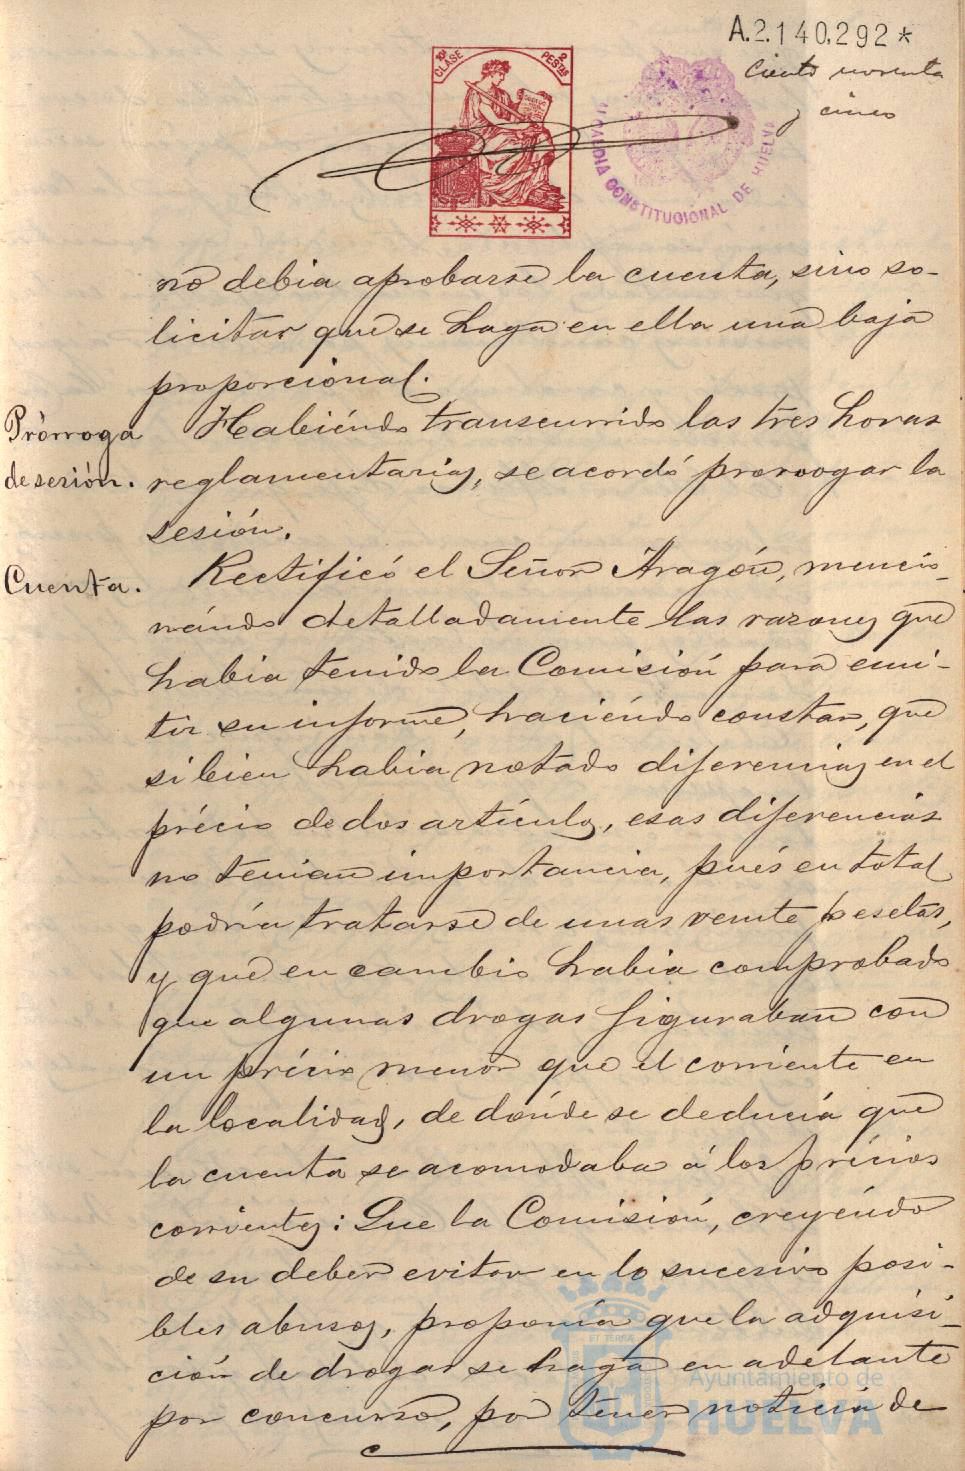 A.2.140,292*
Ciento noventa
y cinco
10ª CLASE
2 PESTAS
ALCALDIA CONSTITUCIONAL DE HUELVA
no debia aprobarse la cuenta, sino so-
licitar que se haga en ella una baja
proporcional.
Prórroga
de sesión.
Habiéndo transcurrido las tres horas
reglamentarias, se acordó prorrogar la
sesión.
Cuenta.
Rectificó el Señor Aragón, mencio-
nándo detalladamente las razones que
habia tenido la Comisión para emi-
tir su informe, haciéndo constar, que
si bien habia notado diferencias en el
précio de dos artículos, esas diferencias
no tenian importancia, pués en total
podría tratarse de unas veinte pesetas,
y que en cambio habia comprobado
que algunas drogas figuraban con
un précio menor que el corriente en
la localidad, de dónde se deducía que
la cuenta se acomodaba á los précios
corrientes: Que la Comisión, creyéndo
de su deber evitar en lo sucesivo posi-
bles abusos, proponía que la adquisi-
ción de drogas se haga en adelante
por concurso, por tener noticia de
Ayuntamiento de
HUELVA